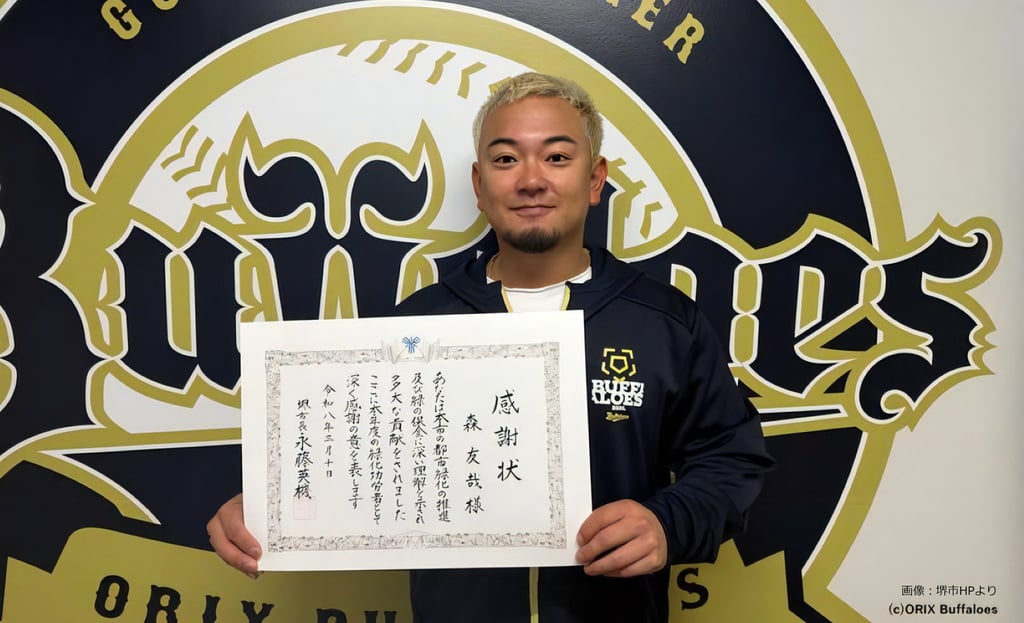 Buffaloes
ORIX BU
S
BUFF
ALOES
感謝状
森友哉様
あなたは本市の都市緑化の推進
及び緑の保全に深い理解を示され
多大な貢献をされました
ここに本年度の緑化功労者として
深く感謝の意を表します
令和八年三月十日
堺市長永藤英機
画像：堺市HPより
(c)ORIX Buffaloes